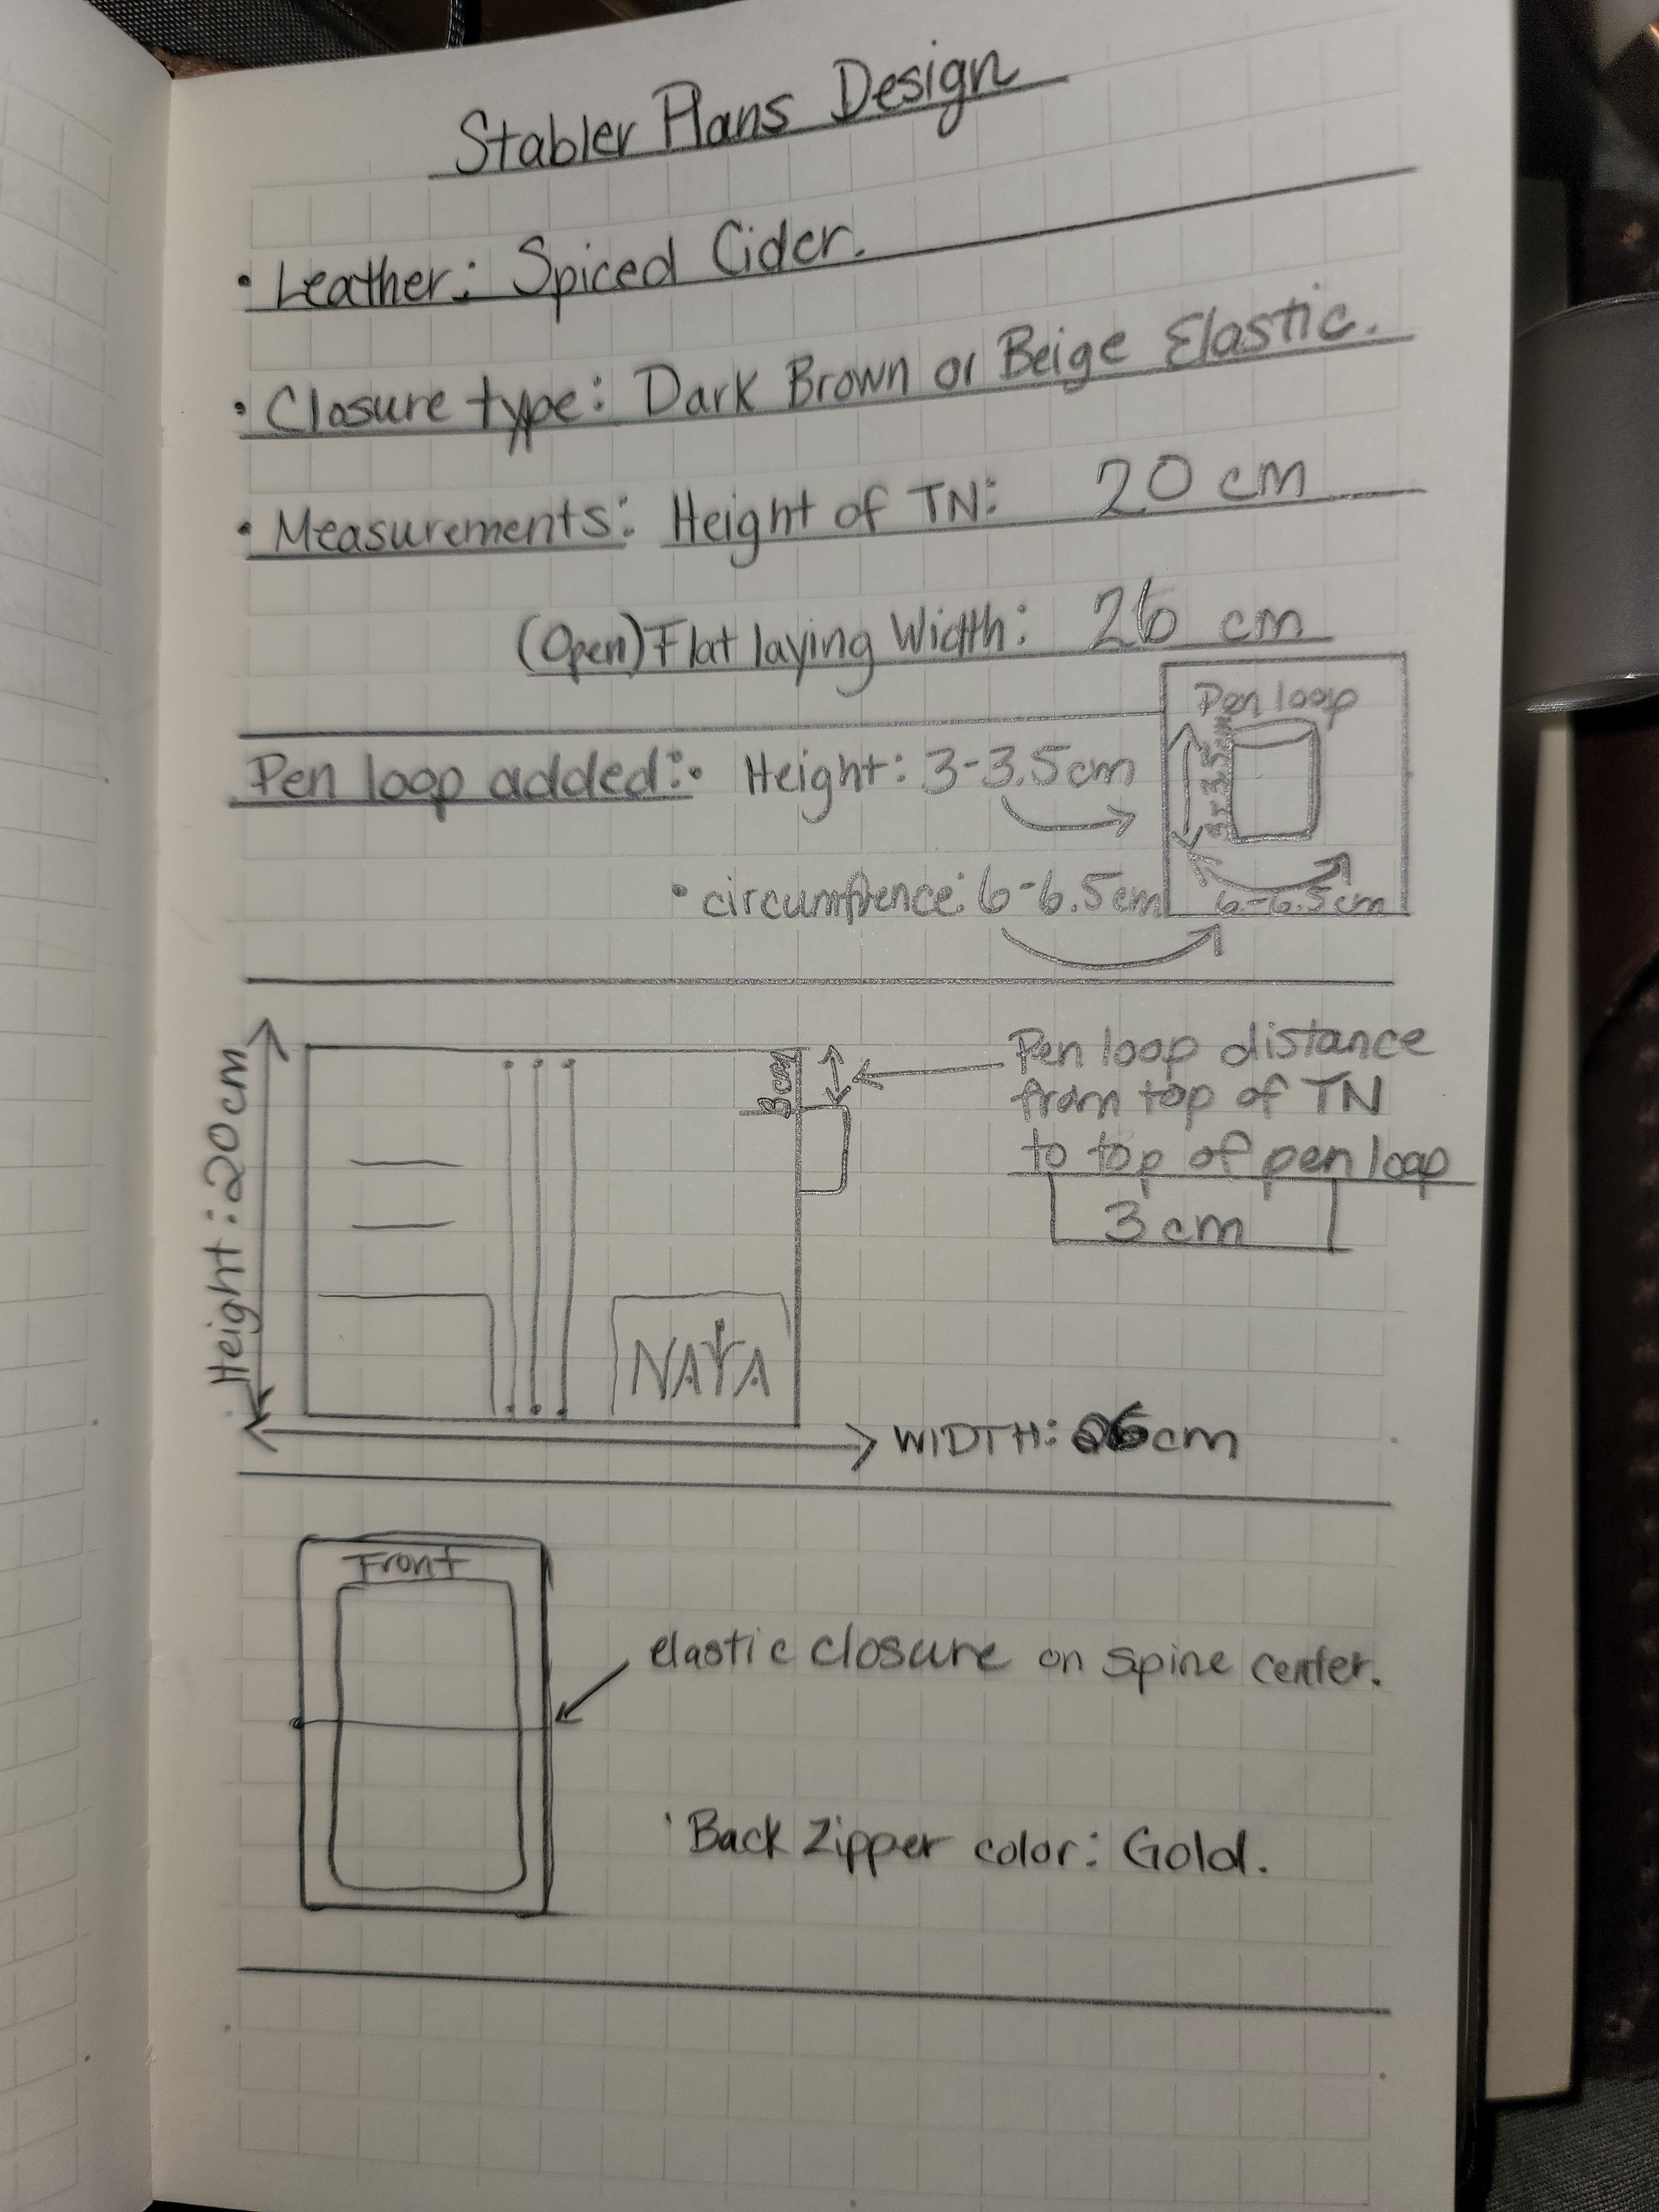 Stabler Plans Design
• Leather: Spiced Cider.
• Closure type: Dark Brown or Beige Elastic.
• Measurements: Height of TN: 20 cm
(Open) Flat laying Width: 26 cm
Pen loop
3-3.5cm
6-6.5cm
Pen loop added: • Height: 3-3.5cm
• circumfrence: 6-6.5cm
Height: 20cm
3cm
Pen loop distance
from top of TN
to top of pen loop
3 cm
NAYA
WIDTH: 26cm
Front
elastic closure on spine center.
• Back Zipper color: Gold.